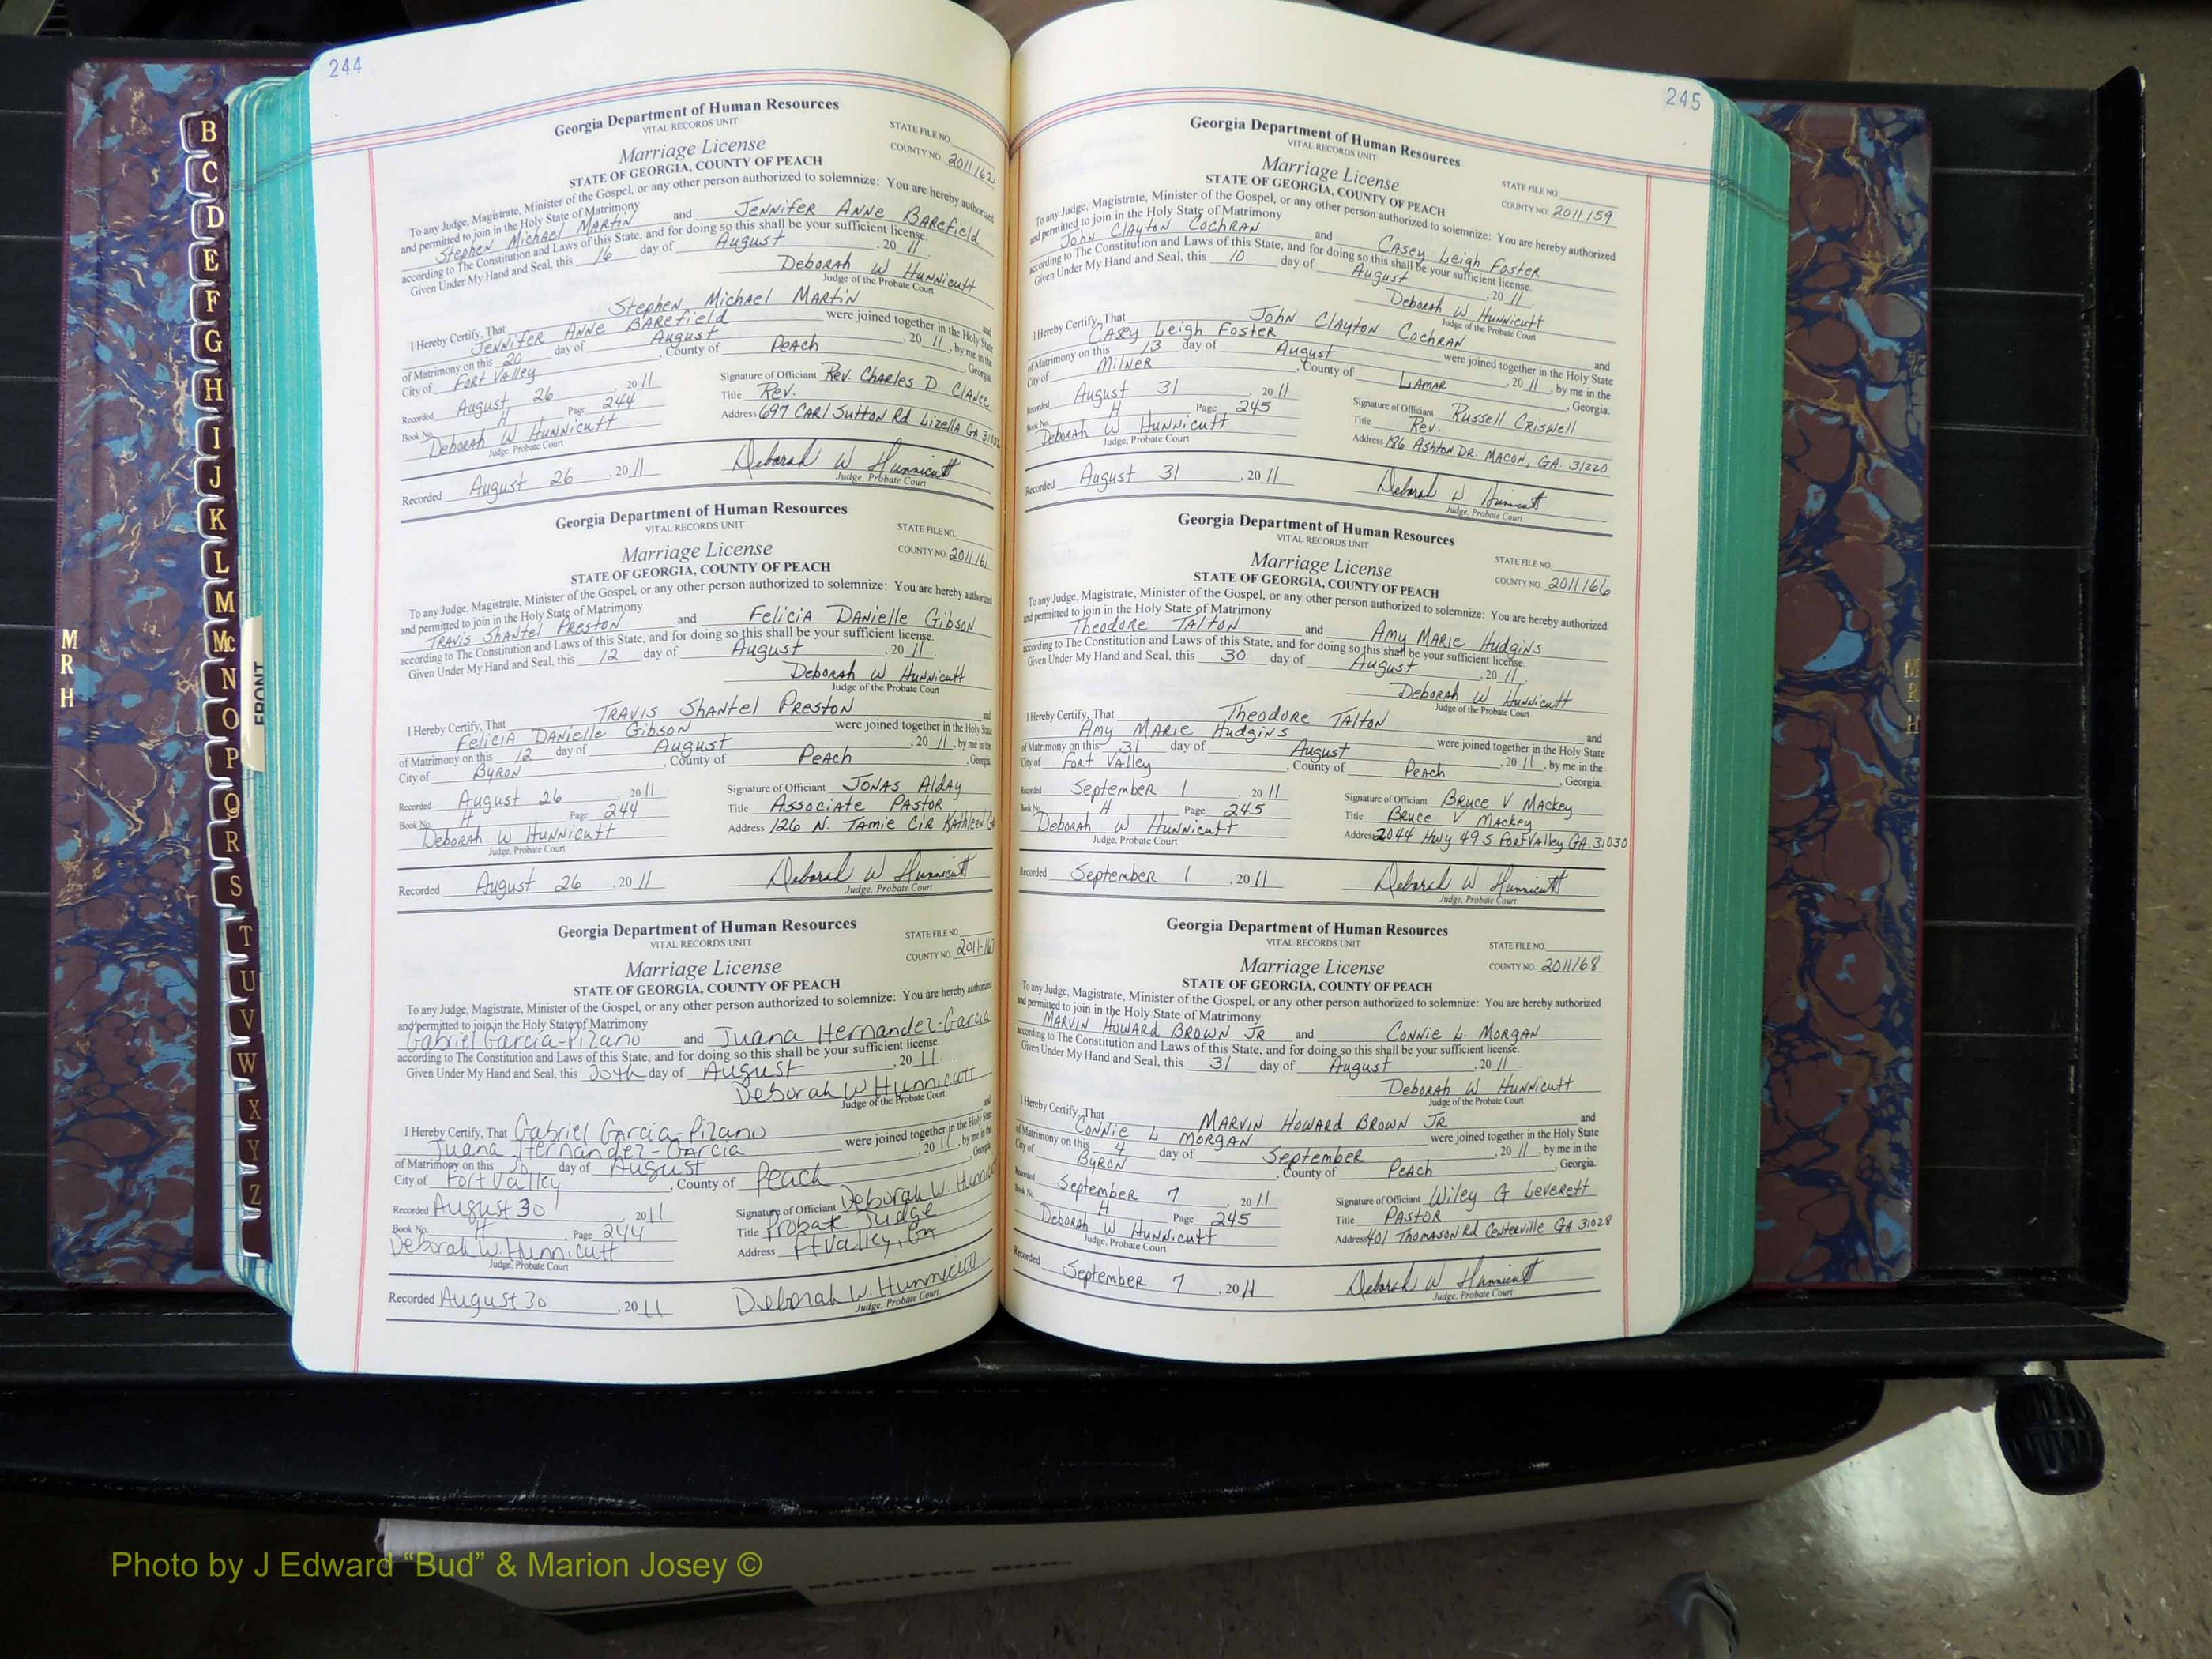 244
Georgia Department of Human Resources
VITAL RECORDS UNIT
STATE FILE NO.
Marriage License
COUNTY NO. 2011162
STATE OF GEORGIA, COUNTY OF PEACH
To any Judge, Magistrate, Minister of the Gospel, or any other person authorized to solemnize: You are hereby authorized
and permitted to join in the Holy State of Matrimony
Stephen Michael Martin and Jennifer Anne Barefield
according to The Constitution and Laws of this State, and for doing so this shall be your sufficient license.
Given Under My Hand and Seal, this 16 day of August, 20 11.
Deborah W Hunnicutt
Judge of the Probate Court
I Hereby Certify, That Stephen Michael Martin and
Jennifer Anne Barefield were joined together in the Holy State
of Matrimony on this 20 day of August, 20 11, by me in the
City of Fort Valley, County of Peach, Georgia.
Recorded August 26 20 11
Signature of Officiant Rev. Charles D. Clance
Book No. H Page 244
Title Rev.
Deborah W Hunnicutt
Address 697 Carl Sutton Rd Lizella GA 31052
Judge, Probate Court
Recorded August 26, 20 11 Deborah W Hunnicutt
Judge, Probate Court
Georgia Department of Human Resources
VITAL RECORDS UNIT
STATE FILE NO.
Marriage License
COUNTY NO. 2011161
STATE OF GEORGIA, COUNTY OF PEACH
To any Judge, Magistrate, Minister of the Gospel, or any other person authorized to solemnize: You are hereby authorized
and permitted to join in the Holy State of Matrimony
Travis Shantel Preston and Felicia Danielle Gibson
according to The Constitution and Laws of this State, and for doing so this shall be your sufficient license.
Given Under My Hand and Seal, this 12 day of August, 20 11.
Deborah W Hunnicutt
Judge of the Probate Court
I Hereby Certify, That Travis Shantel Preston and
Felicia Danielle Gibson were joined together in the Holy State
of Matrimony on this 12 day of August, 20 11, by me in the
City of Byron, County of Peach, Georgia
Recorded August 26 20 11
Signature of Officiant Jonas Alday
Book No. H Page 244
Title Associate Pastor
Deborah W Hunnicutt
Address 126 N. Tamie Cir Kathleen Ga
Judge, Probate Court
Recorded August 26, 20 11 Deborah W Hunnicutt
Judge, Probate Court
Georgia Department of Human Resources
VITAL RECORDS UNIT
STATE FILE NO.
Marriage License
COUNTY NO. 2011-167
STATE OF GEORGIA, COUNTY OF PEACH
To any Judge, Magistrate, Minister of the Gospel, or any other person authorized to solemnize: You are hereby authorized
and permitted to join in the Holy State of Matrimony
Gabriel Garcia-Pizano and Juana Hernandez-Garcia
according to The Constitution and Laws of this State, and for doing so this shall be your sufficient license.
Given Under My Hand and Seal, this 30th day of August, 20 11.
Deborah W Hunnicutt
Judge of the Probate Court
I Hereby Certify, That Gabriel Garcia-Pizano and
Juana Hernandez-Garcia were joined together in the Holy State
of Matrimony on this 30 day of August, 20 11, by me in the
City of Fort Valley, County of Peach Georgia
Recorded August 30 20 11
Signature of Officiant Deborah W. Hunnicutt
Book No. H Page 244
Title Probate Judge
Deborah W. Hunnicutt
Address Ft Valley, Ga
Judge, Probate Court
Recorded August 30, 20 11 Deborah W. Hunnicutt
Judge, Probate Court
245
Georgia Department of Human Resources
VITAL RECORDS UNIT
STATE FILE NO.
Marriage License
COUNTY NO. 2011159
STATE OF GEORGIA, COUNTY OF PEACH
To any Judge, Magistrate, Minister of the Gospel, or any other person authorized to solemnize: You are hereby authorized
and permitted to join in the Holy State of Matrimony
John Clayton Cochran and Casey Leigh Foster
according to The Constitution and Laws of this State, and for doing so this shall be your sufficient license.
Given Under My Hand and Seal, this 10 day of August, 20 11.
Deborah W Hunnicutt
Judge of the Probate Court
I Hereby Certify, That John Clayton Cochran and
Casey Leigh Foster were joined together in the Holy State
of Matrimony on this 13 day of August, 20 11, by me in the
City of Milner, County of Lamar, Georgia.
Recorded August 31 20 11
Signature of Officiant Russell Criswell
Book No. H Page 245
Title Rev.
Deborah W Hunnicutt
Address 186 Ashton Dr. Macon, GA. 31220
Judge, Probate Court
Recorded August 31, 20 11 Deborah W Hunnicutt
Judge, Probate Court
Georgia Department of Human Resources
VITAL RECORDS UNIT
STATE FILE NO.
Marriage License
COUNTY NO. 2011166
STATE OF GEORGIA, COUNTY OF PEACH
To any Judge, Magistrate, Minister of the Gospel, or any other person authorized to solemnize: You are hereby authorized
and permitted to join in the Holy State of Matrimony
Theodore Talton and Amy Marie Hudgins
according to The Constitution and Laws of this State, and for doing so this shall be your sufficient license.
Given Under My Hand and Seal, this 30 day of August, 20 11.
Deborah W Hunnicutt
Judge of the Probate Court
I Hereby Certify, That Theodore Talton and
Amy Marie Hudgins were joined together in the Holy State
of Matrimony on this 31 day of August, 20 11, by me in the
City of Fort Valley, County of Peach, Georgia.
Recorded September 1 20 11
Signature of Officiant Bruce V Mackey
Book No. H Page 245
Title Bruce V Mackey
Deborah W Hunnicutt
Address 2044 Hwy 49 S Fort Valley GA. 31030
Judge, Probate Court
Recorded September 1, 20 11 Deborah W Hunnicutt
Judge, Probate Court
Georgia Department of Human Resources
VITAL RECORDS UNIT
STATE FILE NO.
Marriage License
COUNTY NO. 2011168
STATE OF GEORGIA, COUNTY OF PEACH
To any Judge, Magistrate, Minister of the Gospel, or any other person authorized to solemnize: You are hereby authorized
and permitted to join in the Holy State of Matrimony
Marvin Howard Brown Jr and Connie L. Morgan
according to The Constitution and Laws of this State, and for doing so this shall be your sufficient license.
Given Under My Hand and Seal, this 31 day of August, 20 11.
Deborah W Hunnicutt
Judge of the Probate Court
I Hereby Certify, That Marvin Howard Brown Jr and
Connie L Morgan were joined together in the Holy State
of Matrimony on this 4 day of September, 20 11, by me in the
City of Byron, County of Peach, Georgia.
Recorded September 7 20 11
Signature of Officiant Wiley G Leverett
Book No. H Page 245
Title Pastor
Deborah W Hunnicutt
Address 401 Thomason Rd Centerville GA 31028
Judge, Probate Court
Recorded September 7, 20 11 Deborah W Hunnicutt
Judge, Probate Court
B
C
D
E
F
G
H
I
J
K
L
M
Mc
N
O
P
Q
R
S
T
U
V
W
X
Y
Z
FRONT
M
R
H
M
R
H
Photo by J Edward “Bud” & Marion Josey ©